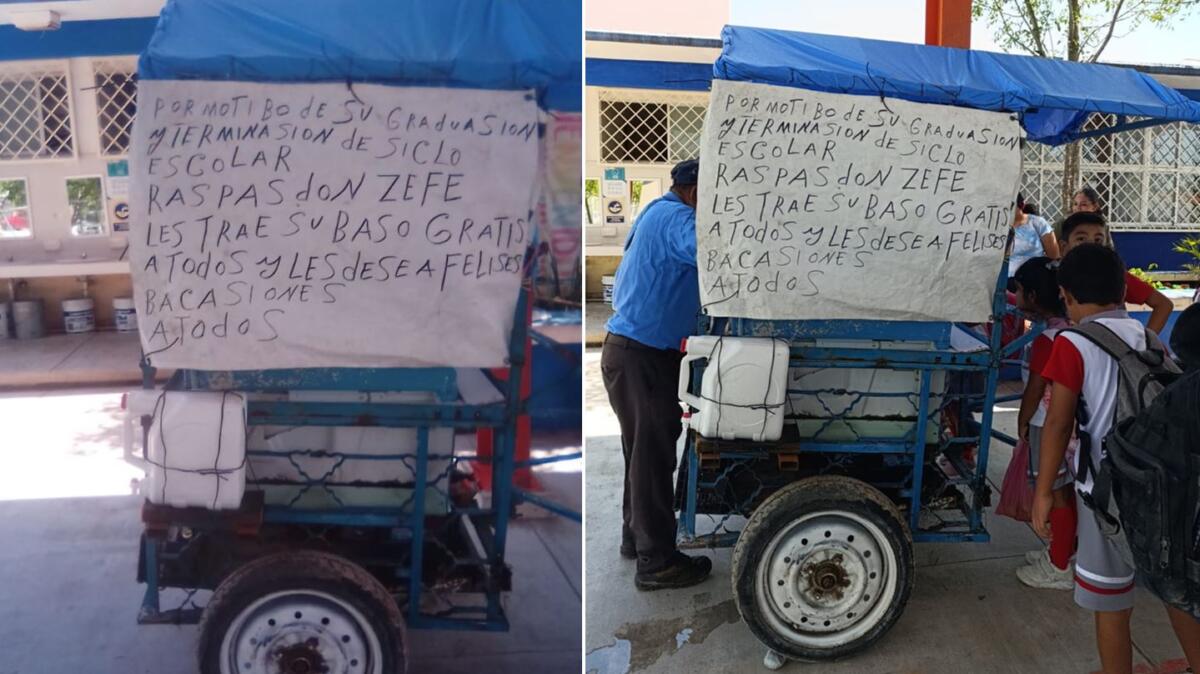 POR MOTIBO dE SU GRADUASION
Y TERMINASION dE SICLO
ESCOLAR
RASPAS dON ZEFE
LES TRAE SU BASO GRATIS
A TODOS Y LES dESEA FELISES
BACASIONES
A TODOS
POR MOTIBO dE SU GRADUASION
Y TERMINASION dE SICLO
ESCOLAR
RASPAS dON ZEFE
LES TRAE SU BASO GRATIS
A TODOS Y LES dESEA FELISES
BACASIONES
A TODOS